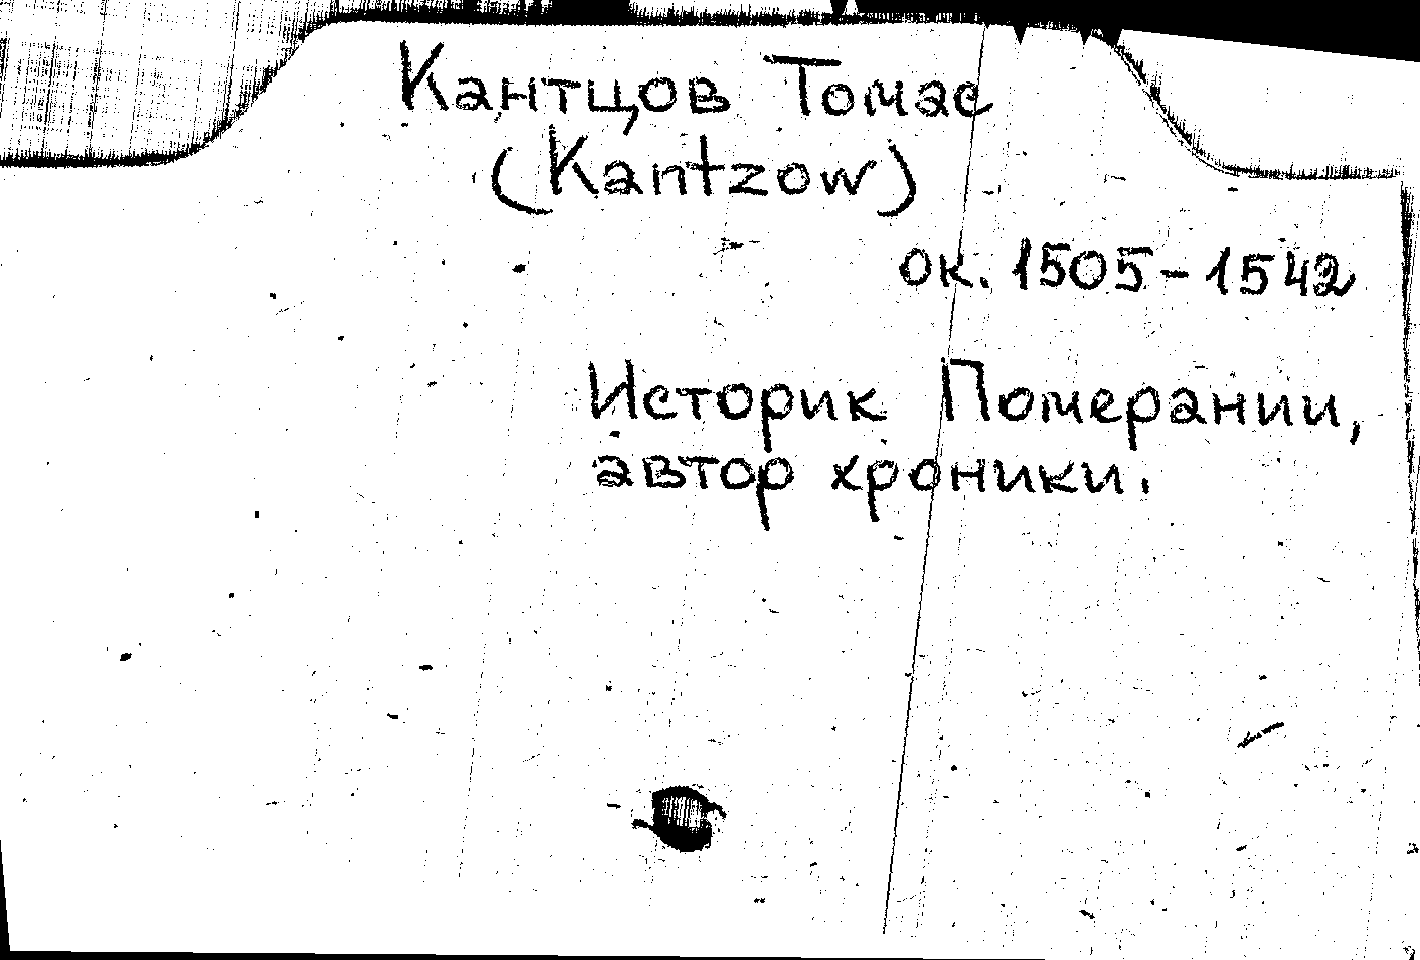 Кантцов Томас
(Kantzow)
ок. 1505-1542
Историк Померании,
автор хроники.